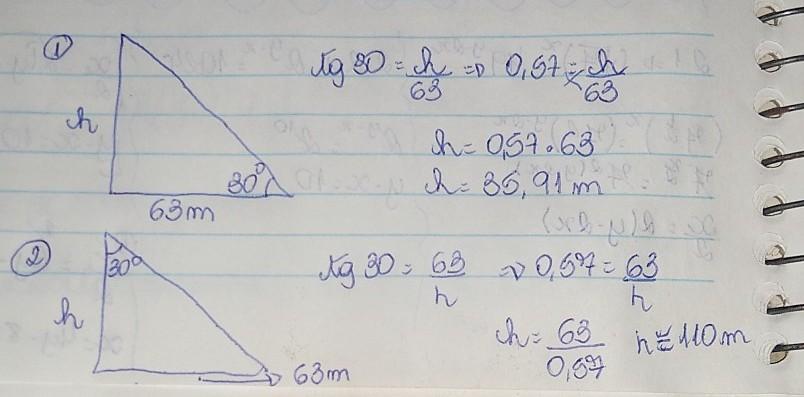 1
h
30°
63m
tg 30 = h/63 => 0,57 = h/63
h = 0,57 . 63
h = 35,91 m
2
30°
h
63m
tg 30 = 63/h => 0,57 = 63/h
h = 63/0,57 h ≅ 110 m